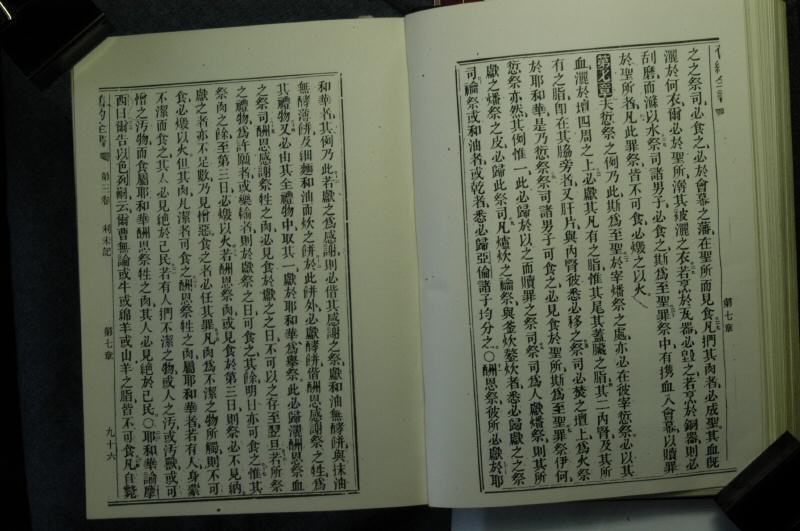 之之祭司必食之必於會幕之藩在聖所而見食凡捫其肉者必成聖其血旣
灑於何衣爾必於聖所漸其被灑之衣若烹於瓦器必毀之若烹於銅器則必
刮磨而滌以水祭司諸男子必食之斯爲至聖罪祭中有携血入會幕以贖罪
於聖所者凡此罪祭皆不可食必燬之以火
第七章夫愆祭之例乃此斯爲至聖於宰燔祭之處亦必在彼宰愆祭必以其
血灑於壇四周之上必獻其凡有之脂惟其尾其蓋臟之脂其二內腎及其所
有之脂卽在其脇旁者又肝片與內腎彼悉必移之祭司必焚之壇上爲火祭
於耶和華是乃愆祭祭司諸男子可食之必見食於聖所斯爲至聖罪祭伊何
愆祭亦然其例惟一此必歸於以而贖罪之祭司祭司爲人獻燔祭則其所
獻之燔祭之皮必歸此祭司凡爐炊之禴祭與釜炊鏊炊者悉必歸獻之之祭
司禴祭或和油者或乾者悉必歸亞倫諸子均分之○酬恩祭彼所必獻於耶
第七章
和華者其例乃此若獻之爲感謝則必偕其感謝之祭獻和油無酵餅與抹油
無酵薄餅及細麵和油而炊之餅於此餅外必獻酵餅偕酬恩感謝祭之牲爲
其禮物又必由其全禮物中取其一獻於耶和華爲舉祭此必歸灑酬恩祭血
之祭司酬恩感謝祭牲之肉必見食於獻之之日不可以之存至翌旦若所祭
之禮物爲許願者或樂輸者則於獻祭之日可食之其餘明日亦可食之惟其
祭肉之餘至第三日必燬以火若酬恩祭肉或見食於第三日則祭必不見納
獻之者亦不足數乃見憎惡食之者必任其罪凡肉爲不潔之物所觸則不可
食必燬以火但其肉凡潔者可食之酬恩祭牲之肉屬耶和華者若有人身蒙
不潔而食之其人必見絕於己民若有人捫不潔之物或人之汚或汚獸或可
憎之汚物而食屬耶和華酬恩祭牲之肉其人必見絕於己民○耶和華諭摩
西曰爾告以色列嗣云爾曹無論或牛或綿羊或山羊之脂皆不可食凡自斃
第三卷 利未記 第七章 九十六